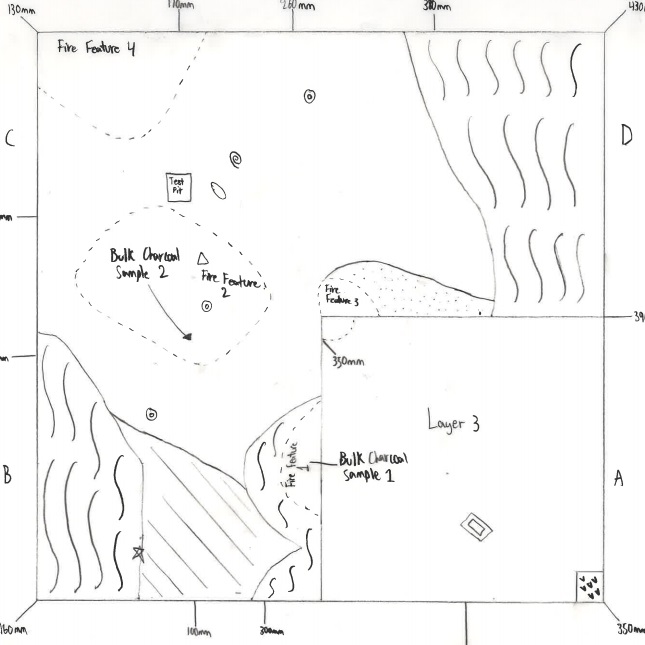 130mm
110mm
260mm
380mm
Fire Feature 4
C
D
Test
Pit
Bulk Charcoal
Sample 2
Fire Feature
2
Fire
Feature 3
350mm
Layer 3
Fire Feature
1
Bulk Charcoal
Sample 1
B
A
100mm
300mm
350mm